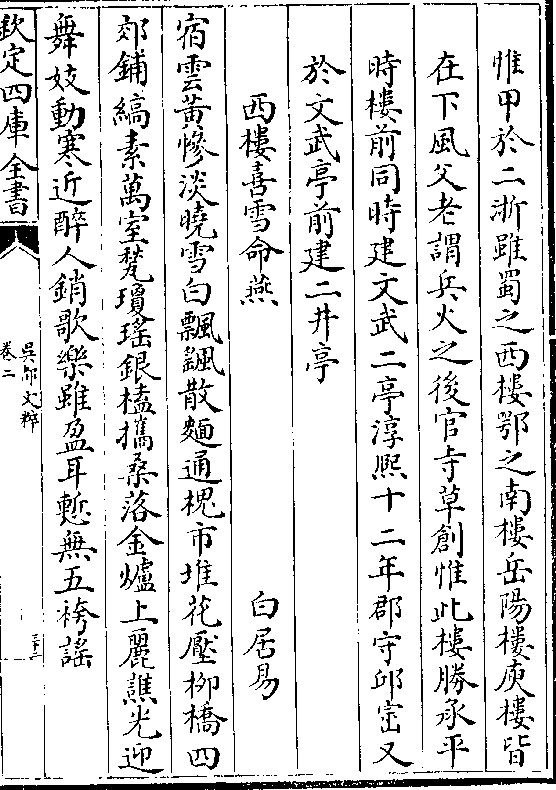 惟甲於二浙雖蜀之西樓鄂之南樓岳陽樓庾樓皆
在下風父老謂兵火之後官寺草創惟此樓勝承平
時樓前同時建文武二亭淳熙十二年郡守邱崈又
於文武亭前建二井亭
西樓喜雪命燕 白居易
宿雲黄慘淡曉雪白飄颻散麵通槐市堆花壓柳橋四
郊鋪縞素萬室甃瓊瑤銀榼攜桑落金爐上麗譙光迎
舞妓動寒近醉人銷歌樂雖盈耳慙無五袴謡
欽定四庫全書
吳都文粹
卷二
三十二